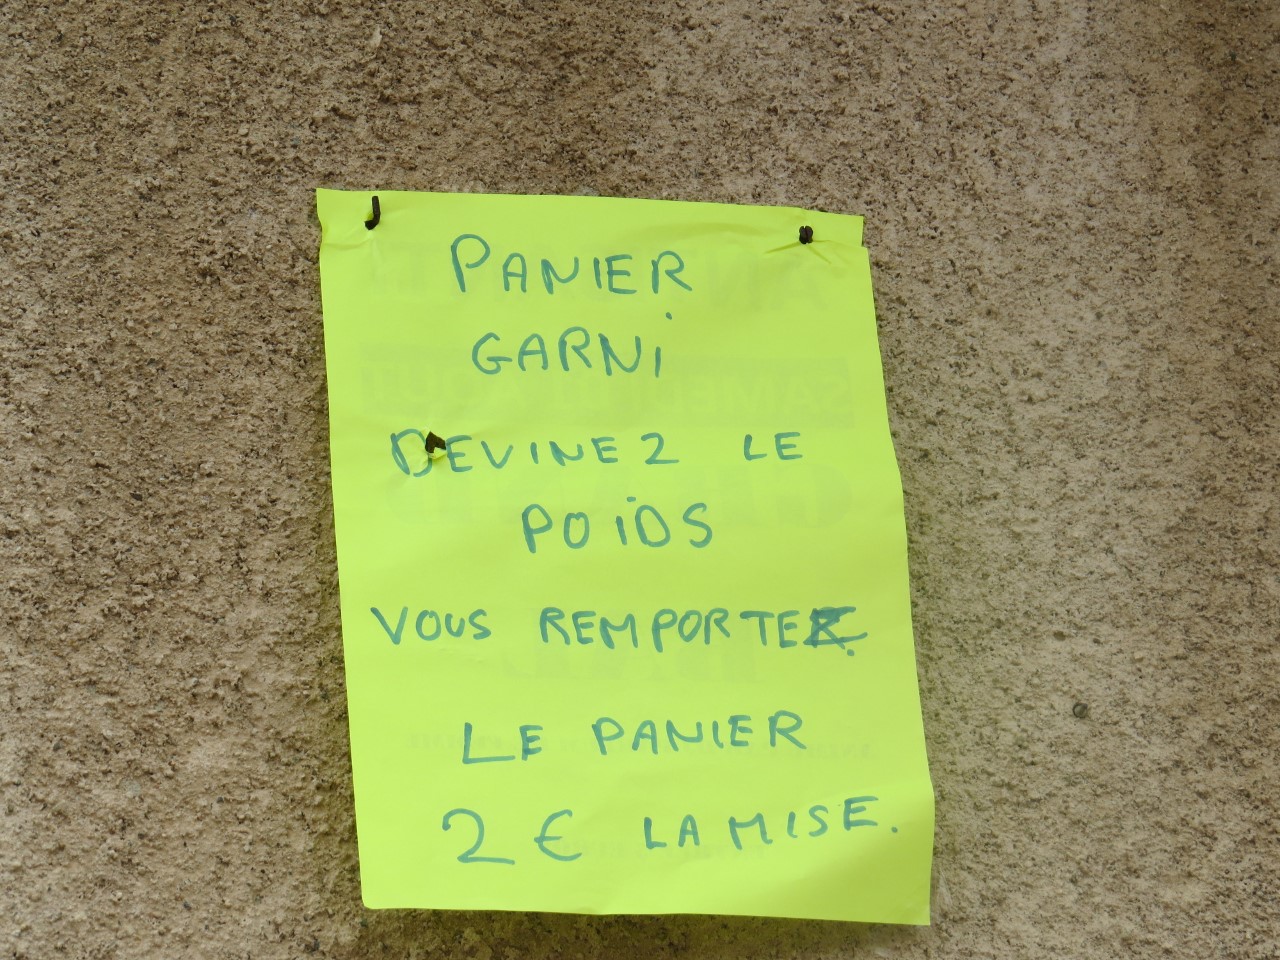 PANIER
GARNi
DEVINEZ LE
POiDS
VOUS REMPORTEZ.
LE PANIER
2 € LA MISE.